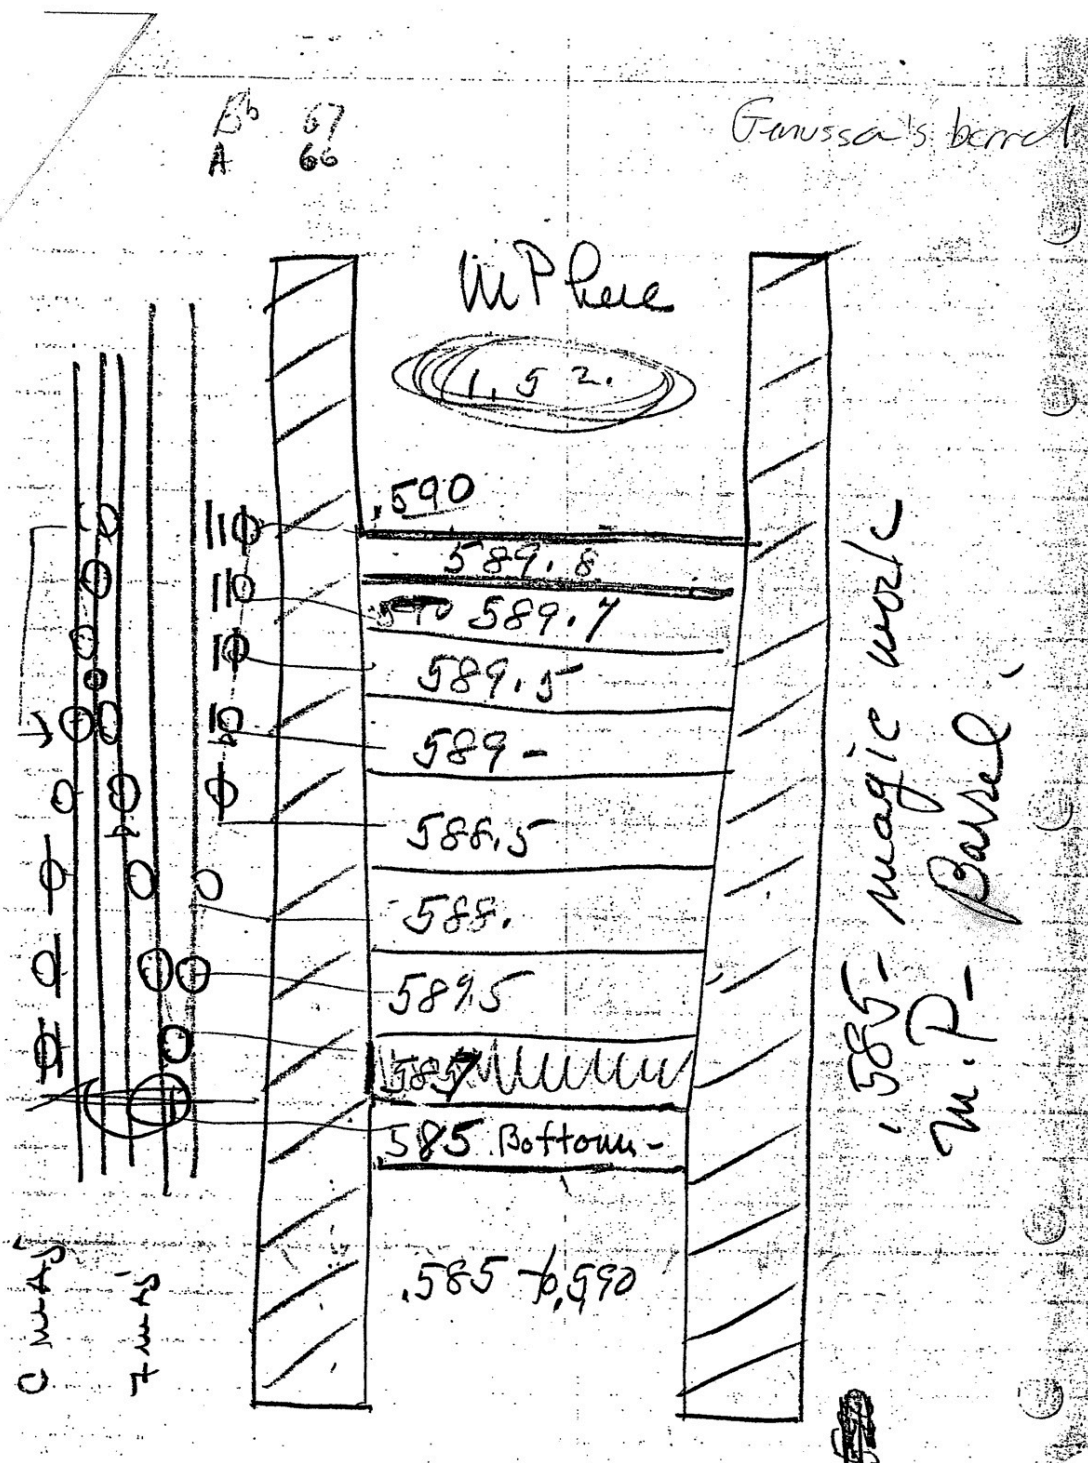 Bb 67
A 66
Genussa's barrel
MP here
1.52.
.590
589.8
589.7
589.5
589-
588.5
588.
589.5
587
.585 Bottom-
.585 to .590
.585- magic work
M.P- Barrel.
C maj
7 maj